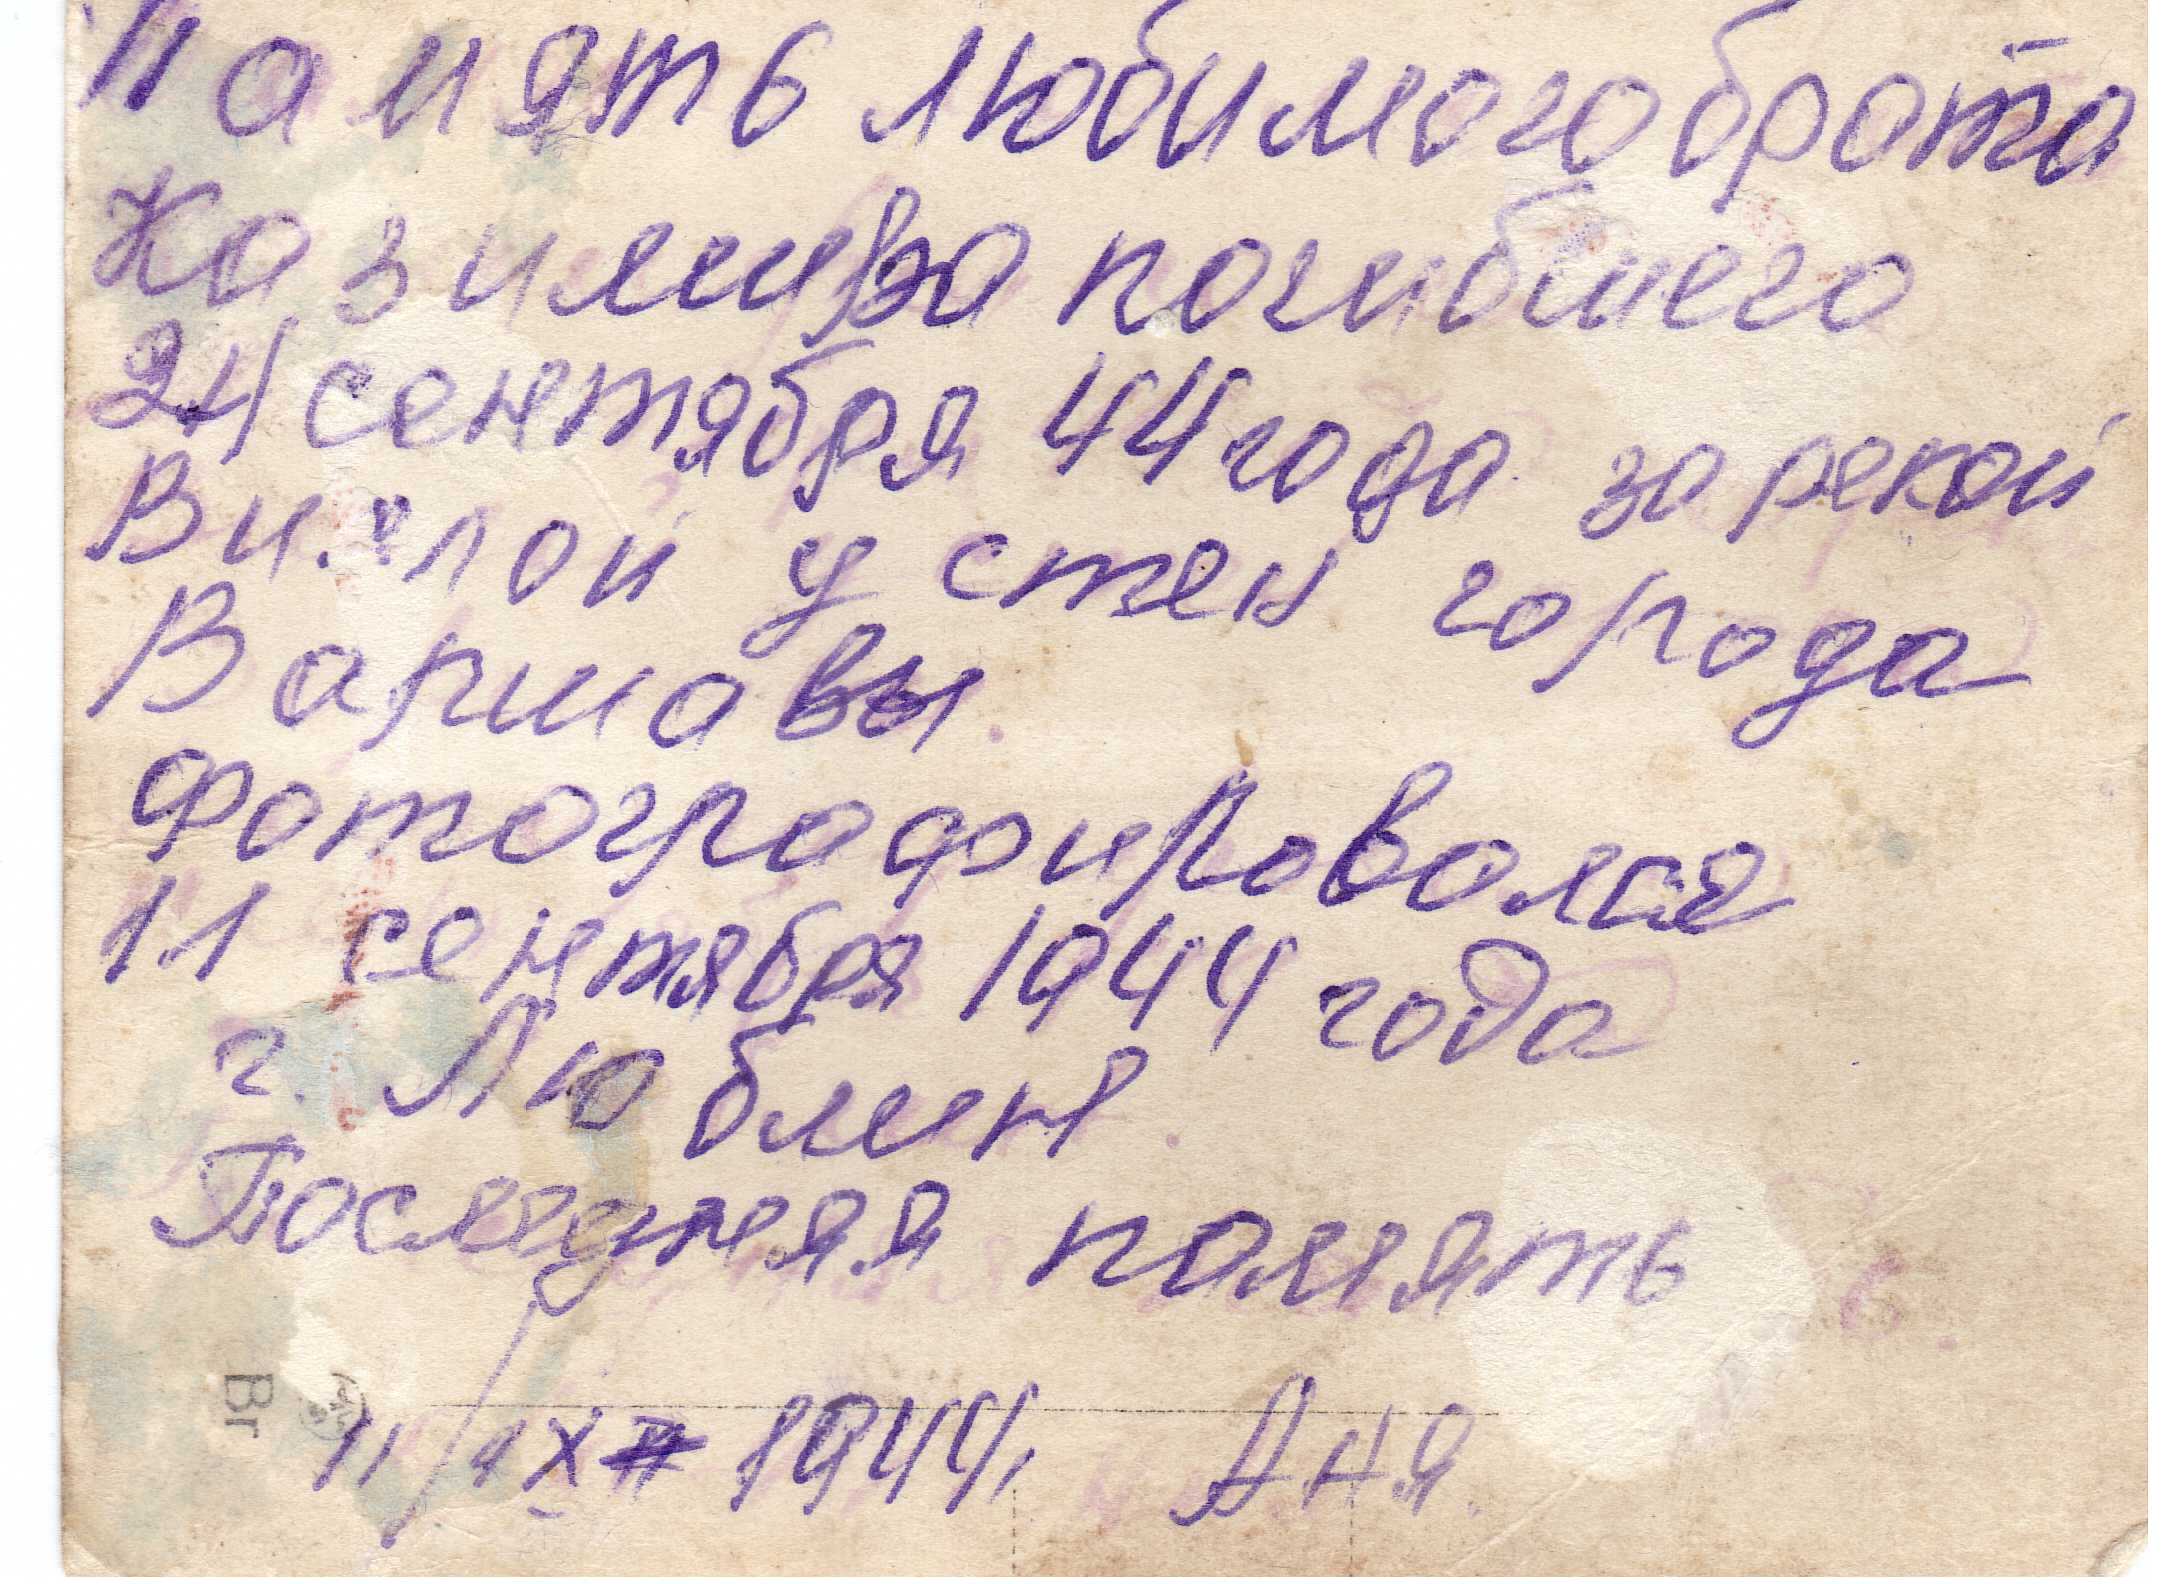 Память любимого брата
Казимира погибшего
24 сентября 44 года за рекой
Вислой у стен города
Варшавы.
Фотографировался
11 сентября 1944 года
г. Люблин.
Последняя память
11/IX 1944 г. дня.
Br